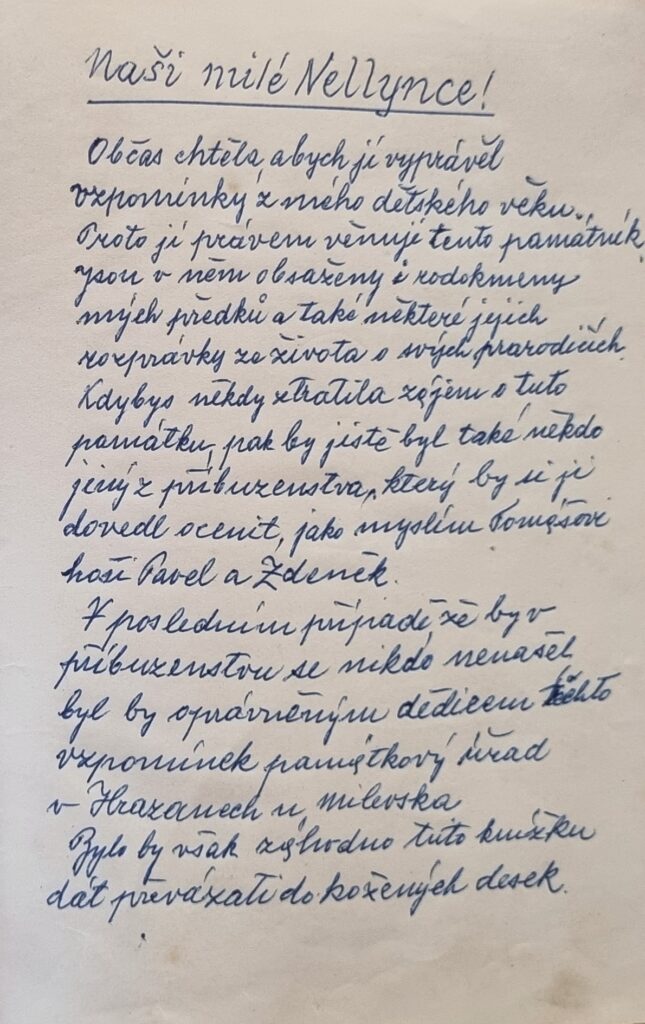 Naši milé Nellynce!
Občas chtěla, abych jí vyprávěl
vzpomínky z mého dětského věku.
Proto jí právem věnuji tento památník
jsou v něm obsaženy i rodokmeny
mých předků a také některé jejich
rozprávky za života o svých prarodičích.
Kdybys někdy ztratila zájem o tuto
památku, pak by jistě byl také někdo
jiný z příbuzenstva, který by si ji
dovedl ocenit, jako myslím Tomášovi
hoši Pavel a Zdeněk.
V posledním případě že by v
příbuzenstvu se nikdo nenašel
byl by oprávněným dědicem těchto
vzpomínek památkový úřad
v Hrazanech u Milevska
Bylo by však záhodno tuto knížku
dát převázati do kožených desek.